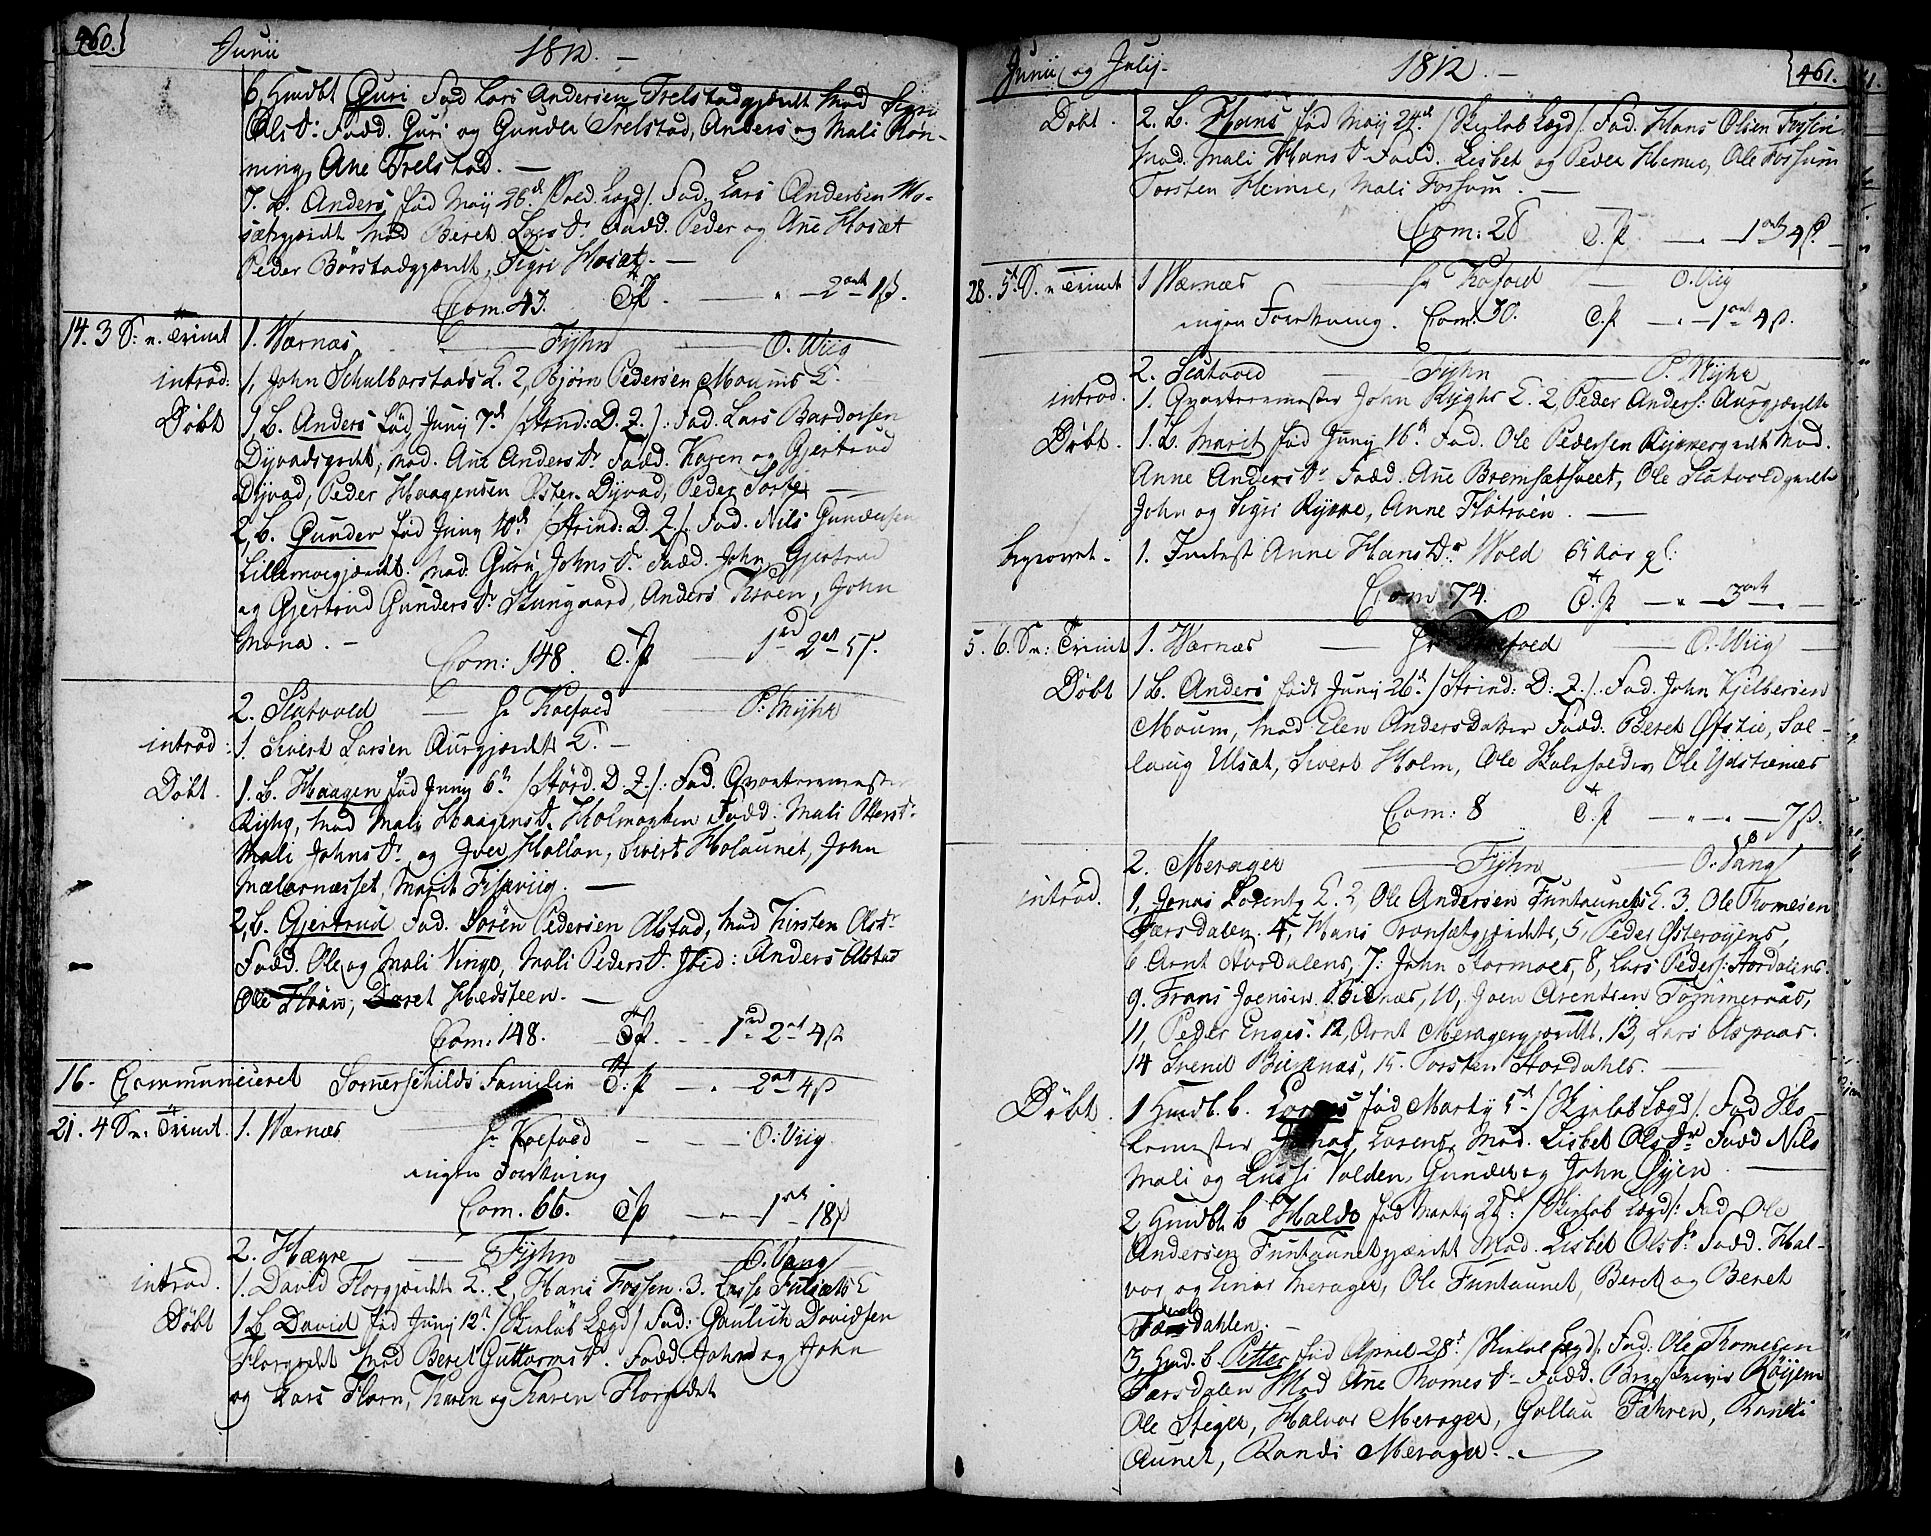 460. Junii 1812. -
6, Hmdbt Guri Fad Lars Andersen Trelstadgjerdt Mod Sigri
Ols Dr: Fadd. Guri og Gunder Trelstad, Anders og Mali Røn-
ning, Ane Trelstad. -
7. b. Anders fød May 26d Fad. Lars Andersen Ho-
sætgjerdt Mod Beret Lars Dr. Fadd. Peder og Ane Hosæt
Peder Børstadgjerdt, Sigri Hosæt. -
Com. 43. T. p. - " - 2 ort 1 β.
14. 3 S: n. Trinit 1. Wærnæs - Fyhn - O. Wiig
introd: 1, John Schulborstads E. 2, Bjørn Pedersen Moums E.
Døbt 1. b. Anders fød Juny 7d /Strind: D. 2./: Fad. Lars Bardorsen
Dyvadsgrdt, Mod. Ane Anders Dr Fadd. Hagen og Gjertrud
Dyvad, Peder Haagensen Østen Dyvad, Peder
2, b. Gunder fød Juny 10d /Strind: D. 2./. Fad. Nils Gundersen
Lillemoegjerdt. Mod: Guru Johns Dr Fadd. John, Gjertrud
og Gjertrud Gunders Dr Skungaard, Anders Kroen, John
Mona. -
Com: 148. T. p - 1rd 2ort 5 β.
2. Skatvold - Hr Koefoed - P: Myhr
introd: 1. Sivert Larsen Aurgjerdts E. -
Døbt. 1. b. Haagen fød Juny 6th /Størd. D. 2./: Fad. Qvarteermester
Ryhg, Mod Mali Haagens Dr. Fadd: Mali Otters Dr
Mali Johns Dr. og Iver Hollan, Sivert Holaunet, John
Mælarnæsset, Marit Fisviig. -
2, b. Gjertrud Fad. Sørën Pedersen Alstad, Mod Kirsten Ols Dr
Fadd. Ole og Mali Vinge, Mali Peders Dr. Ibid: Anders Alstad
Ole Floan, Beret Hedsteen. -
Com: 148. T. p. - - 1rd 2ort 4 β
16. Communiceret Somerschilds Familie T: p - " 2ort 4 β
21. 4 S. n. Trinit. 1. Wærnæs Hr Koefoed - - O: Wiig.
ingen Forretning
Com. 66. T p - " - 1ort 18 β
2. Hægre - Fyhn - O. Vang
introd. 1. David Florgjerdts E. 2, Hans Fossen. 3. Lasse Fulsæts E
Døbt 1 b David fød Juny 12t /Skirløb Lægd/ Fad: Gaulich Davidsen
Florgrdt Mod Beret Guttorms Dr. Fadd. John og John
og Lars Florn, Karen og Karen Florgrdt
Junii og Julij - 1812. - 461.
Døbt. 2. b. Hans fød May 24d /Skirløb Lægd/. Fad. Hans Olsen Fossen
Mod. Mali Hans Dr Fadd. Lisbet og Peder Hemre, Ole Fossum
Torsten Hemre, Mali Fossum. -
Com: 28 T. p. - " - 1ort 4 β.
28. 5te S. n Trinit 1 Wærnæs - Hr Koefoed - O. Wiig
ingen Forretning. Com: 30. T. p - " - 1ort 4 β.
2. Skatvold - Fyhn - P. Myhr
introd. 1. Qvarteermester John Ryghs E. 2, Peder Anders: Aurgjerdts
Døbt. 1. b. Marit fød Juny 16th Fad. Ole Pedersen Mod.
Anne Anders Dr Fadd. Ane Bremsætsveet, Ole Skatvoldgrdt
John og Sigri Kyrre, Anne Flotroën. -
begravet. 1. Inderst Anne Hans Dr Wold 65 Aar gl:
Com. 74. T. p - " - 3ort -
5. 6. S n: Trinit 1. Wærnæs - Hr Koefoed - O. Wiig
Døbt 1 b. Anders født Juny 26d /Strind: D: 2./. Fad. John Kjelbersen
Moum, Mod Elen Andersdatter Fadd. Beret Øfstie, Sol-
laug Ulsæt, Sivert Holm, Ole Ole Ydstienæs
Com: 8 T. p - " - " - 7 β.
2. Merager - Fyhn - O. Vang
introd. 1, Jonas Lorentz E. 2, Ole Andersen Funtaunets E. 3, Ole Thomesen
Færsdalen. 4, Hans Tronsætgjerdts, 5, Peder Østerøyens,
6. Arnt Stordalens, 7: John Stormoes, 8, Lars Peders: Stordalens.
9. Frans Joensen Biænæs, 10, Joen Arentsen Tømmeraas,
11, Peder Enges. 12, Arnt Meragergjerdt. 13, Lars Aspaas.
14 Svend Biernæs, 15. Torsten Stordahls. -
Døbt. 1 Hmdbt. b. fød Marty 5t /Skirløb Lægd/. Fad
Jonas Lorens, Mod. Lisbet Ols Dr Fadd Nils
Mali og Lussi Volden, Gunder og John Øyen. -
2, Hmdbt. b Haldo fød Marty 25t: /Skirløb Lægd/: Fad Ole
Andersen Funtaunetgjerdt Mod. Lisbet Ols Dr. Fadd. Hal-
vor og Einar Merager, Ole Funtaunet, Beret og Beret
Færsdahlen. -
3, Hmd. b Petter fød April 28t /Skirløb Lægd/. Fad: Ole Thomesen
Færsdalen Mod Ane Thomes Dr - Fadd. Bergskriver Røyem
Ole Stiger, Halvor Merager, Gollau Fæhren, Randi
Aunet, Randi Merager. -